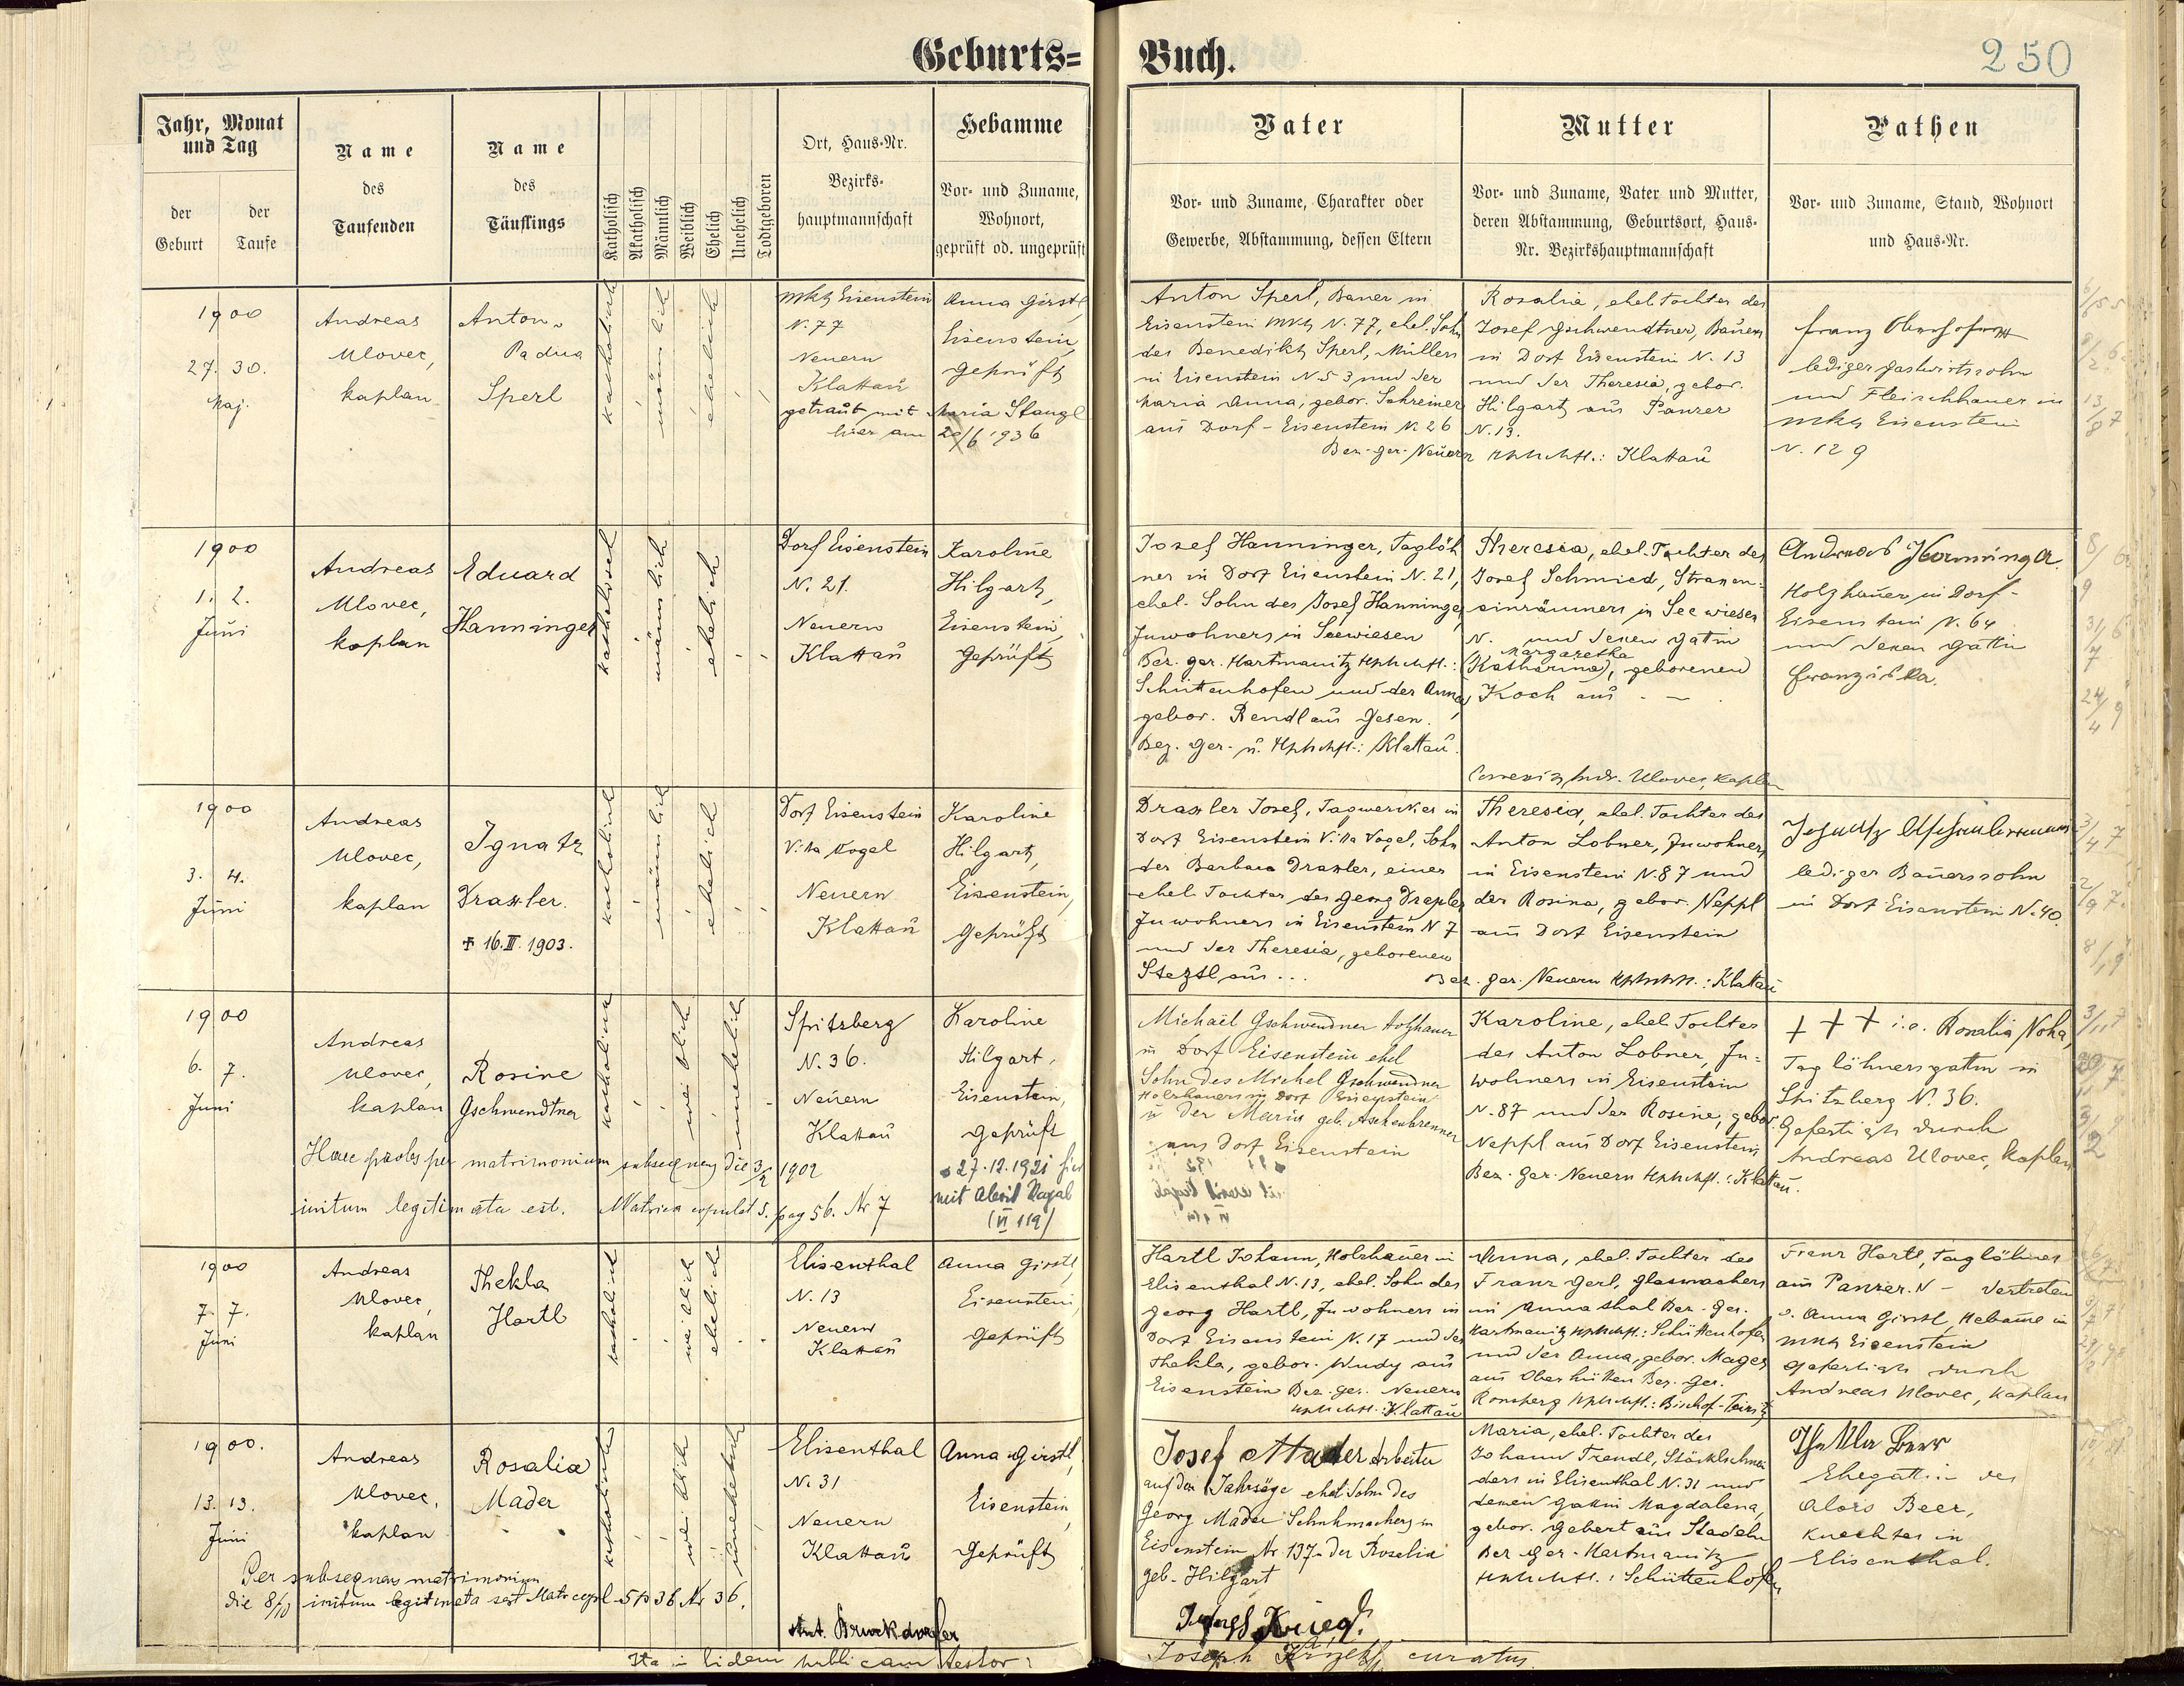 Geburts=
Buch.
250
Jahr, Monat
und Tag
der
Geburt
der
Taufe
Name
des
Taufenden
Name
des
Täuflings
Katholisch
Akatholisch
Männlich
Weiblich
Ehelich
Unehelich
Todtgeboren
Ort, Haus-Nr.
Bezirks-
hauptmannschaft
Hebamme
Vor- und Zuname,
Wohnort,
geprüft od. ungeprüft
Vater
Vor- und Zuname, Charakter oder
Gewerbe, Abstammung, dessen Eltern
Mutter
Vor- und Zuname, Vater und Mutter,
deren Abstammung, Geburtsort, Haus-
Nr. Bezirkshauptmannschaft
Pathen
Vor- und Zuname, Stand, Wohnort
und Haus-Nr.
1900
27. 30.
Maj.
Andreas
Ulovec,
kaplan
Anton
Padua
Sperl
katholisch
männlich
ehelich
Mkt Eisenstein
N. 77
Neuern
Klattau
Anna Girstl,
Eisenstein,
geprüft
getraut mit Maria Stangl
hier am 20/6 1936
Anton Sperl, Bauer in
Eisenstein Mkt N. 77, ehel. Sohn
des Benedikt Sperl, Müllers
in Eisenstein N 53 und der
Maria Anna, gebor. Schreiner
aus Dorf-Eisenstein N. 26
Bez. ger. Neuern
Rosalia, ehel. Tochter des
Josef Gschwendtner, Bauers
in Dorf Eisenstein N. 13
und der Theresia, gebor.
Hilgart aus Panzer
N. 13.
Hptmschft.: Klattau
Franz
lediger Gastwirtssohn
und Fleischhauer in
Mkt Eisenstein
N. 129
1900
1. 2.
Juni
Andreas
Ulovec,
kaplan
Eduard
Hanninger
katholisch
männlich
ehelich
Dorf Eisenstein
N. 21.
Neuern
Klattau
Karoline
Hilgart,
Eisenstein,
geprüft
Josef Hanninger, Taglöh
ner in Dorf Eisenstein N. 21,
ehel. Sohn des Josef Hanninger,
Inwohners in Seewiesen
Bez. ger. Hartmanitz Hptmschft.:
Schüttenhofen und der Anna,
gebor. Rendl aus Gesen.
Bez. ger. u. Hptmschft.: Klattau.
Theresia, ehel. Tochter des
Josef Schmied, Strassen-
einräumers in Seewiesen
N. und dessen Gattin
Margaretha
(Katharina), geborenen
Koch aus - -
Correxit Andr. Ulovec, kaplan
Andreas Hanninger
Holzhauer in Dorf-
Eisenstein N. 64
und dessen Gattin
Franziska.
1900
3. 4.
Juni
Andreas
Ulovec,
kaplan
Ignatz
Draxler.
† 16. III. 1903.
katholisch
männlich
ehelich
Dorf Eisenstein
Villa Vogel
Neuern
Klattau
Karoline
Hilgart,
Eisenstein,
geprüft
Draxler Josef, Tagwerker in
Dorf Eisenstein Villa Vogel, Sohn
der Barbara Draxler, einer
ehel. Tochter des Georg Draxler
Inwohners in Eisenstein N 7
und der Theresia, geborenen
Steztl aus ...
Theresia, ehel. Tochter des
Anton Lobner, Inwohners
in Eisenstein N. 87 und
der Rosina, gebor. Neppl
aus Dorf Eisenstein
Bez. ger. Neuern Hptmschft.: Klattau
Ignatz Aschenbrenner
lediger Bauerssohn
in Dorf Eisenstein N. 40.
1900
6. 7.
Juni
Andreas
Ulovec,
kaplan
Rosine
Gschwendtner
katholisch
weiblich
unehelich
Spitzberg
N. 36.
Neuern
Klattau
Karoline
Hilgart,
Eisenstein,
geprüft
27.12.1921 hier
mit Alois
(VI 119)
Haec proles per matrimonium subsequens die 3/2 1902
initum legitimata est. Matrica copulat. 5. pag 56. Nr 7
Michael Gschwendner Holzhauer
in Dorf Eisenstein ehel
Sohn des Michel Gschwendner
Holzhauers in Dorf Eisenstein
u der Maria geb. Aschenbrenner
aus Dorf Eisenstein
Karoline, ehel. Tochter
des Anton Lobner, In-
wohners in Eisenstein
N. 87 und der Rosine, gebor.
Neppl aus Dorf Eisenstein
Bez. Ger. Neuern Hptmschft.: Klattau.
+ + + i.e. Rosalia Noha,
Taglöhnersgattin in
Spitzberg N. 36.
Gefertigt durch
Andreas Ulovec, kaplan
1900
7. 7.
Juni
Andreas
Ulovec,
kaplan
Thekla
Hartl
katholisch
weiblich
ehelich
Elisenthal
N. 13
Neuern
Klattau
Anna Girstl,
Eisenstein,
geprüft
Hartl Johann, Holzhauer in
Elisenthal N. 13, ehel. Sohn des
Georg Hartl, Inwohners in
Dorf Eisenstein N. 17 und der
Thekla, gebor. Wudy aus
Eisenstein Bez. ger. Neuern
Hptmschft.: Klattau
Anna, ehel. Tochter des
Franz Gerl, Glasmachers
in Annathal Bez. ger.
Hartmanitz Hptmschft.: Schüttenhofen
und der Anna, gebor. Mages
aus Oberhütten Bez. ger.
Ronsperg Hptmschft.: Bischof-Teinitz
Franz Hartl, Taglöhner
aus Panzer. N - vertreten
v. Anna Girstl, Hebame in
Mkt Eisenstein
gefertigt durch
Andreas Ulovec, kaplan
1900.
13. 13.
Juni
Andreas
Ulovec,
kaplan
Rosalia
Mader
katholisch
weiblich
unehelich
Elisenthal
N. 31
Neuern
Klattau
Anna Girstl,
Eisenstein,
geprüft
Per subsequens matrimonium
die 8/10 initum legitimata est Matr copul. 5 p 36 Nr 36.
Josef Mader Arbeiter
auf der Jahrsäge ehel Sohn des
Georg Mader Schuhmachers in
Eisenstein Nr 137 u der Rosalia
geb. Hilgart
Maria, ehel. Tochter des
Johann Trendl, Stöcklschnei
ders in Elisenthal N. 31 und
dessen Gattin Magdalena,
gebor. Gebert aus Stadeln
Bez. ger. Hartmanitz
Hptmschft.: Schüttenhofen
Thekla Beer
Ehegattin des
Alois Beer,
Knechtes in
Elisenthal.
Ant. Bruckdorfer
Ita in fidem publicam testor: